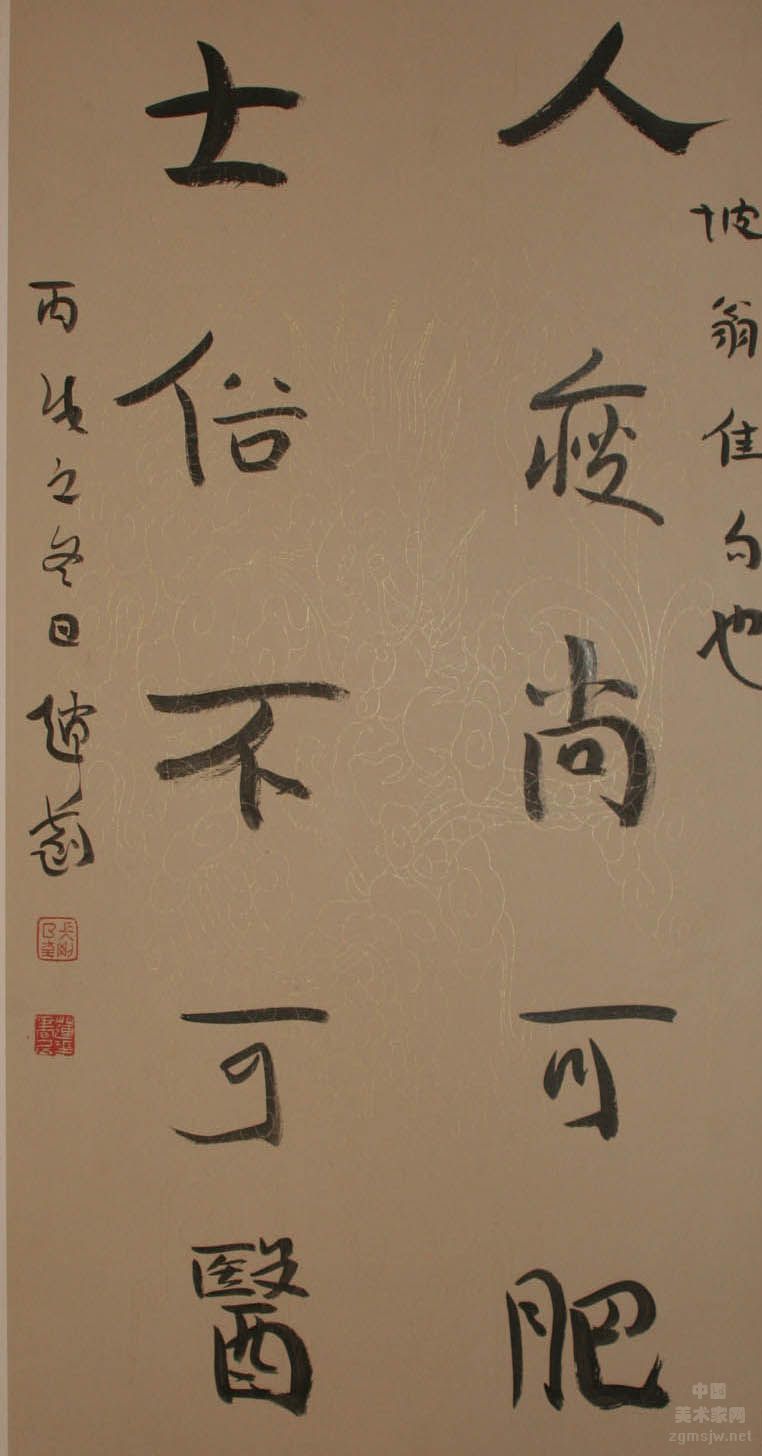 坡翁佳句也
人瘦尚可肥
士俗不可醫
丙戌之冬日
中国
美术家网
zgmsjw.net